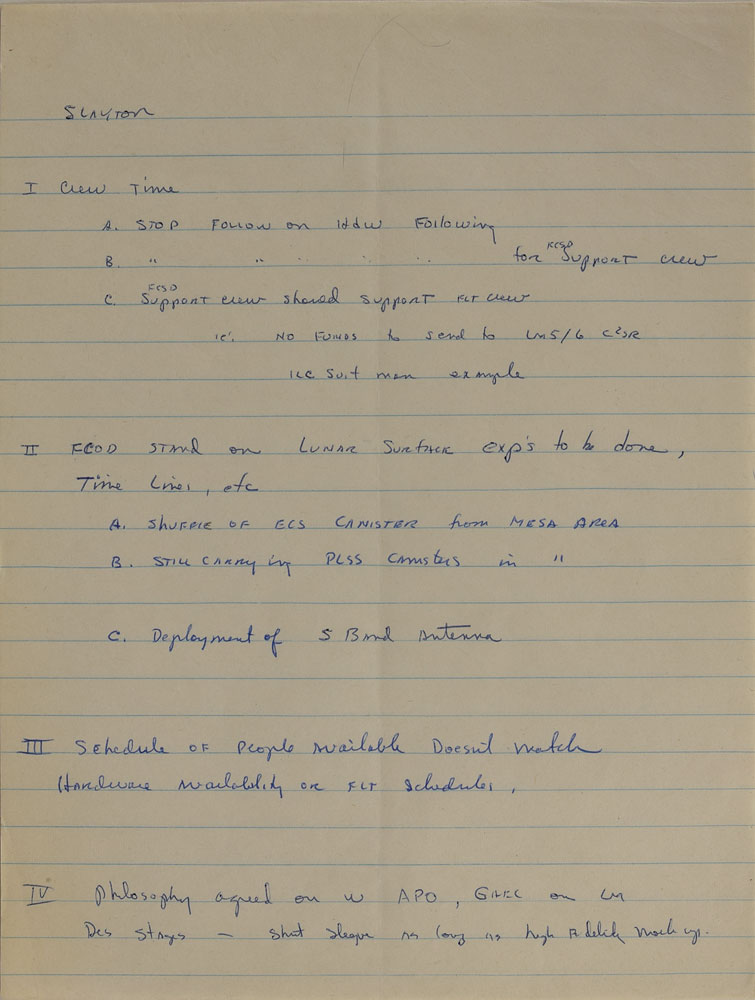 SLAYTON
I Crew Time
A. STOP Follow on Hdw Following
B. " " " " for FCSD Support crew
C. FCSD Support crew shared support FLT crew
ie'. NO FUNDS to send to LM5/6 C²SR
ILC suit man example
II FCOD STAND on LUNAR SURFACE exp's to be done,
Time Lines, etc
A. SHUFFLE OF ECS CANISTER from MESA AREA
B. STILL CARRYing PLSS CANISTERS in "
C. Deployment of S Band Antenna
III Schedule OF People Available Doesn't match
Hardware Availability or FLT Schedules,
IV Philosophy agreed on w APO, GAEC on LM
Des Stages — Shirt Sleeve as long as high Fidelity Mock up.